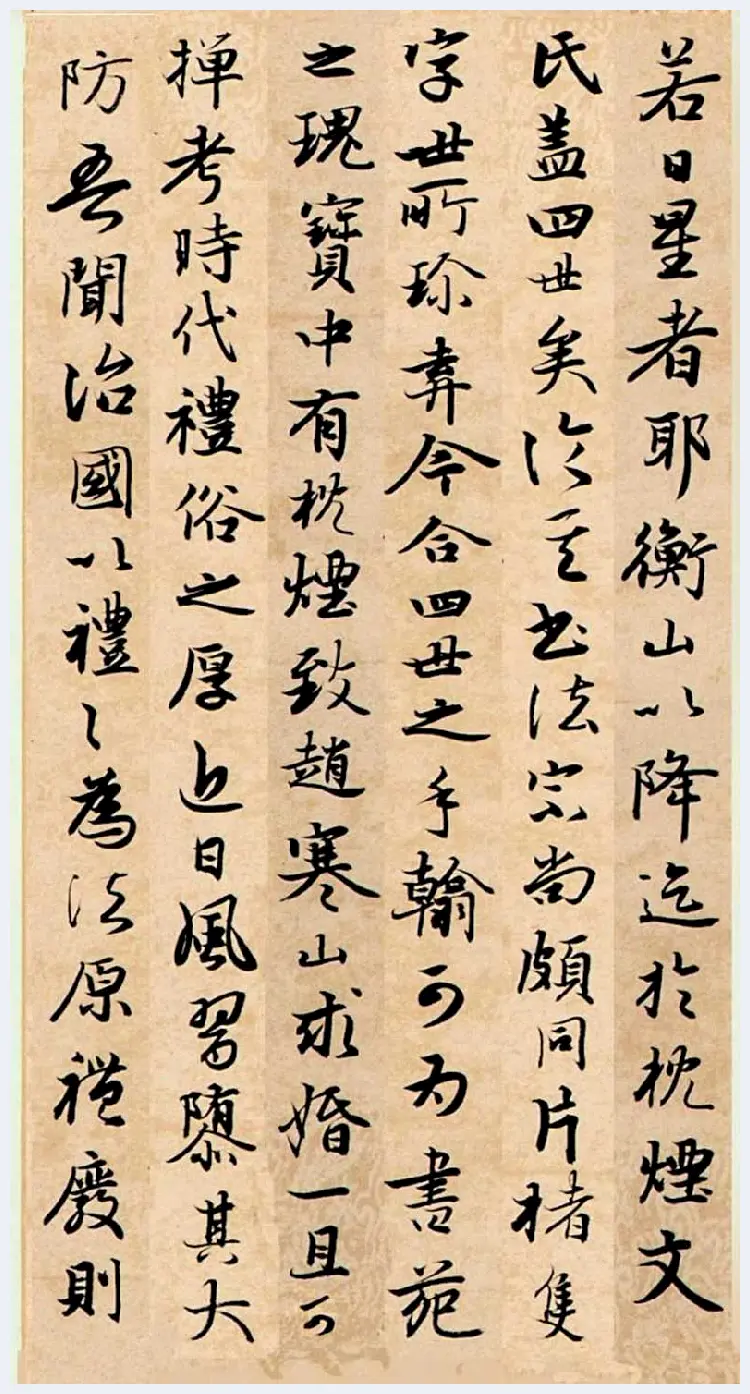 若日星者耶衡山以降迄於枕煙文
氏蓋四世矣論其書法宗尚頗同片楮隻
字世所珍弆今合四世之手翰可為書苑
之瑰寶中有枕煙致趙寒山求婚一且可
掸考時代禮俗之厚近日風習隳其大
防吾聞治國以禮〻為法原禮廢則